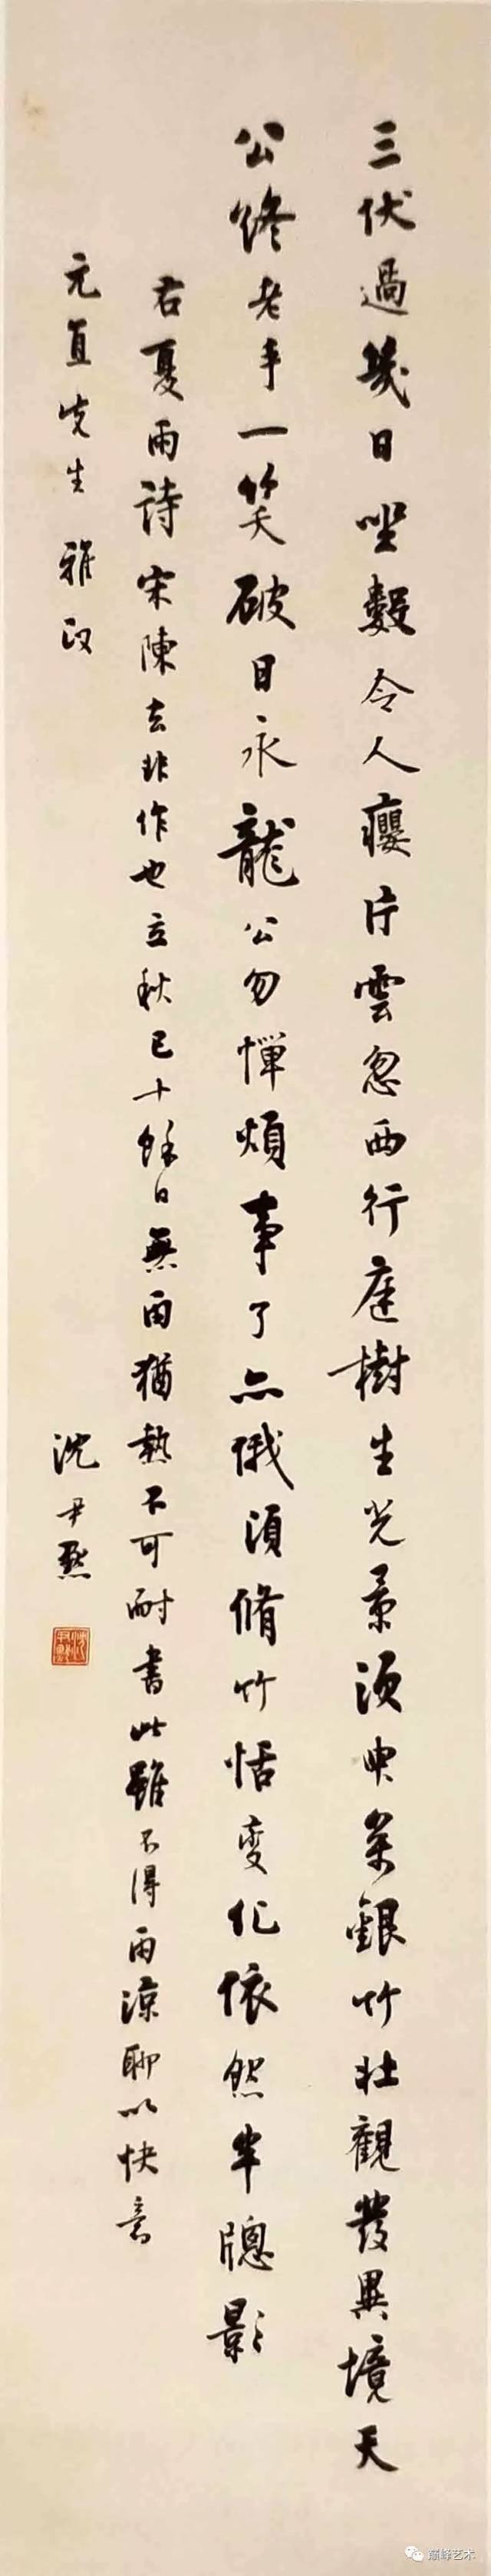 三伏過幾日坐數令人癭片雲忽西行庭樹生光景須臾萬銀竹壯觀發異境天
公終老手一笑破日永龍公勿憚煩事了亦俄頃脩竹恬變化依然半牕影
右夏雨詩宋陳去非作也立秋已十餘日無雨猶熱不可耐書此雖不得雨涼聊以快意
元直先生雅政
沈尹默
巅峰艺术